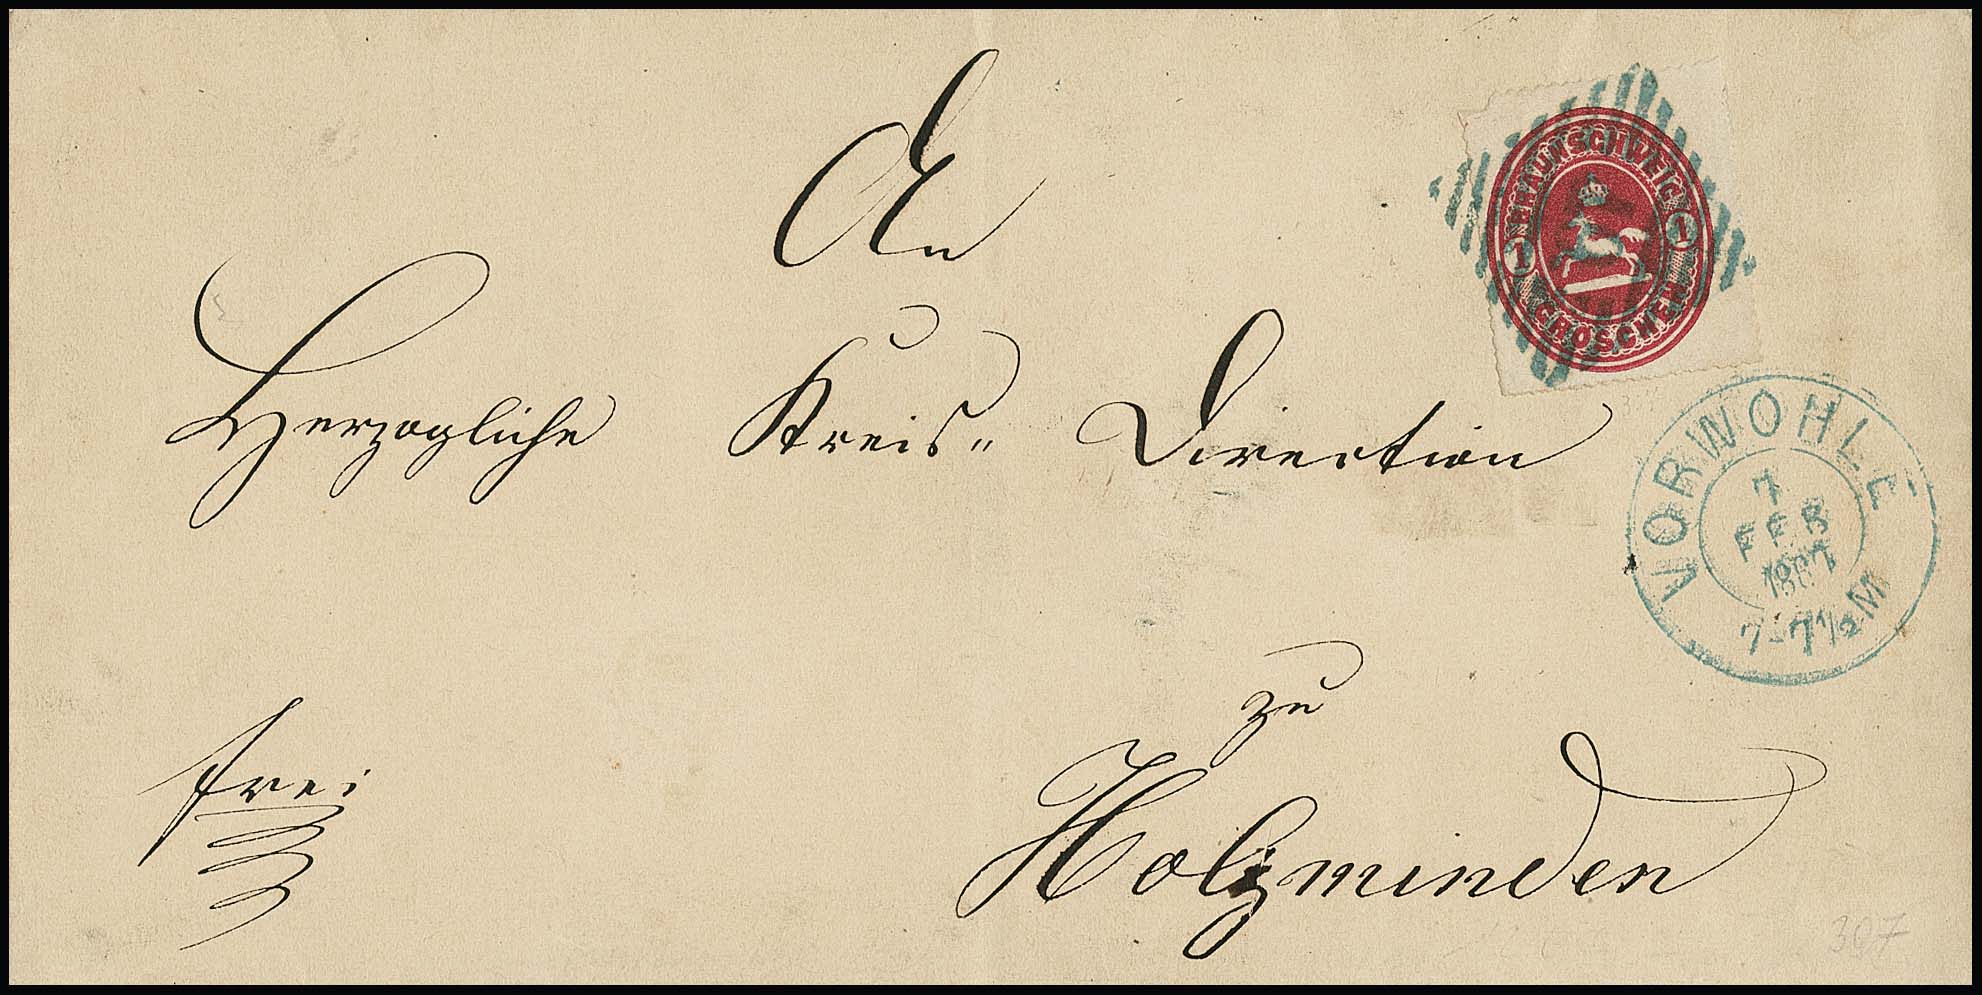 An
BRAUNSCHWEIG
1 1
GROSCHEN
Herzogliche Kreis" Direction
VORWOHLE
7
FEB
1867
7-7½M
zu
frei
Holzminden
307